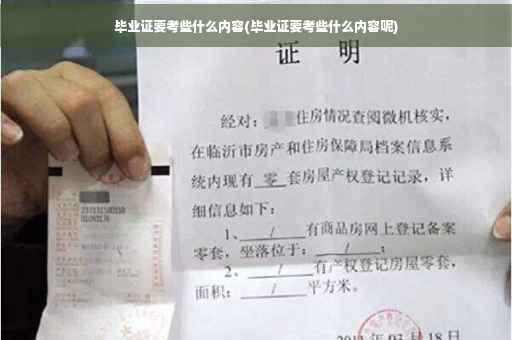 毕业证要考些什么内容(毕业证要考些什么内容呢)
证 明
经对：住房情况查阅微机核实，
在临沂市房产和住房保障局档案信息系
统内现有 零 套房屋产权登记记录，详
细信息如下：
1、 / 有商品房网上登记备案
零套，坐落位于： / ；
2、 / 有产权登记房屋零套，
面积： / 平方米。
年 03 月 18 日